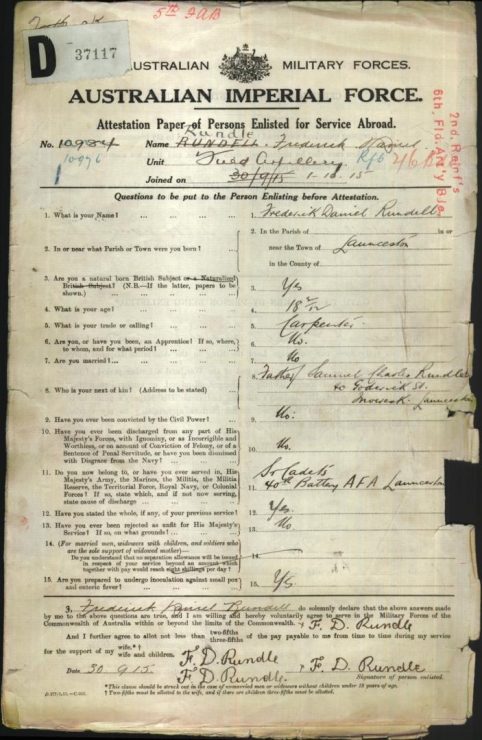 5th FAB
D 37117
AUSTRALIAN MILITARY FORCES.
AUSTRALIAN IMPERIAL FORCE.
Attestation Paper of Persons Enlisted for Service Abroad.
Rundle
No. 10984 Name RUNDELL Frederick Daniel
10976
Unit Field Artillery
Joined on 30/9/15 1-10-15
2nd. Reinf's
6th. Fld. Art'y B'de
Questions to be put to the Person Enlisting before Attestation.
1. What is your Name? ... 1. Frederick Daniel Rundell
2. In or near what Parish or Town were you born? ... 2. In the Parish of in or
near the Town of Launceston
in the County of
3. Are you a natural born British Subject or a Naturalized British Subject? (N.B.—If the latter, papers to be shown.) 3. Yes
4. What is your age? ... 4. 18
5. What is your trade or calling? ... 5. Carpenter
6. Are you, or have you been, an Apprentice? If so, where, to whom, and for what period? ... 6. No.
7. Are you married? ... 7. No
8. Who is your next of kin? (Address to be stated) 8. Father Samuel Charles Rundle
40 Frederick St.
Launceston
9. Have you ever been convicted by the Civil Power? ... 9. No.
10. Have you ever been discharged from any part of His
Majesty's Forces, with Ignominy, or as Incorrigible and
Worthless, or on account of Conviction of Felony, or of a
Sentence of Penal Servitude, or have you been dismissed
with Disgrace from the Navy? ... 10. No.
11. Do you now belong to, or have you ever served in, His
Majesty's Army, the Marines, the Militia, the Militia
Reserve, the Territorial Force, Royal Navy, or Colonial
Forces? If so, state which, and if not now serving,
state cause of discharge ... 11. Sr Cadets
40th Battery AFA Launceston
12. Have you stated the whole, if any, of your previous service? 12. Yes.
13. Have you ever been rejected as unfit for His Majesty's
Service? If so, on what grounds? ... 13. No
14. (For married men, widowers with children, and soldiers who
are the sole support of widowed mother)—
Do you understand that no separation allowance will be issued
in respect of your service beyond an amount which
together with pay would reach eight shillings per day? 14.
15. Are you prepared to undergo inoculation against small pox
and enteric fever? ... 15. Yes.
3. Frederick Daniel Rundell do solemnly declare that the above answers made
by me to the above questions are true, and I am willing and hereby voluntarily agree to serve in the Military Forces of the
Commonwealth of Australia within or beyond the limits of the Commonwealth. + F. D. Rundle
And I further agree to allot not less than two-fifths three-fifths of the pay payable to me from time to time during my service
for the support of my wife.*†
wife and children. F. D. Rundle
Date 30.9.15. F. D. Rundle. + F. D. Rundle
Signature of person enlisted.
*This clause should be struck out in the case of unmarried men or widowers without children under 18 years of age.
† Two-fifths must be allotted to the wife, and if there are children three-fifths must be allotted.